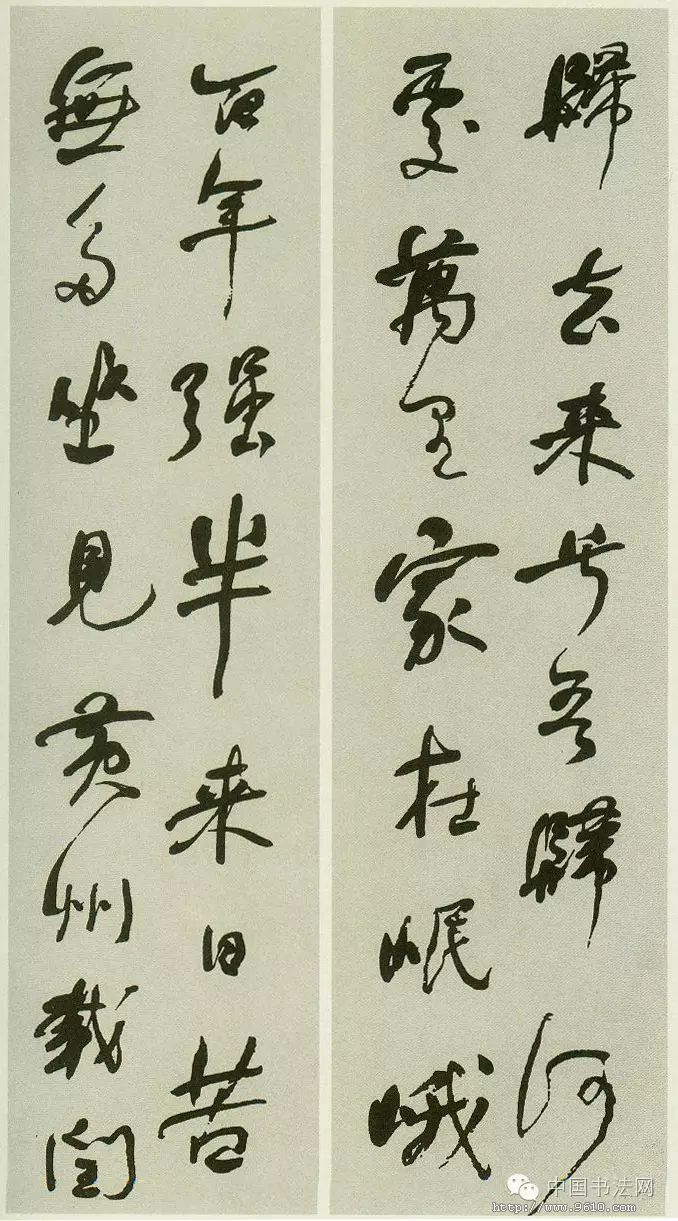 歸去来兮吾歸何
處萬里家在岷峨
百年强半来日苦
無多坐見黄州載閏
中国书法网
http://www.9610.com